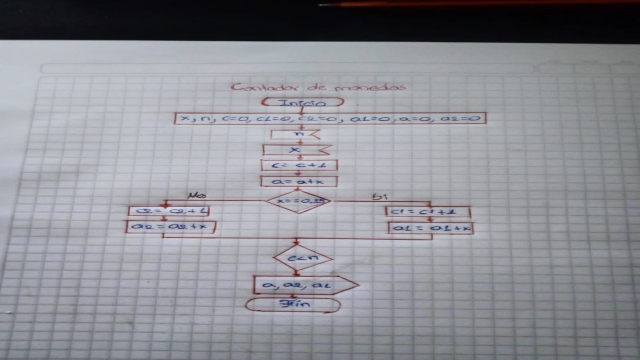 Contador de monedas
Inicio
x, n, c=0, c1=0, c2=0, a1=0, a=0, a2=0
n
x
c = c+1
a = a+x
No
Si
c2 = c2+1
c1 = c1+1
a2 = a2+x
a1 = a1+x
c<n
a, a2, a1
Fin